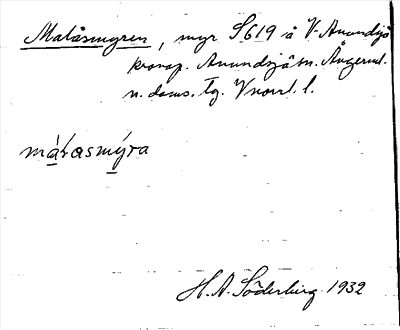 Malåsmyren, myr S 619 å V. Anundsjö
kronop. Anundsjö sn. Ångerml.
n. doms. Tg. Vnorrl. l.
márasmýra
H. A. Söderberg 1932